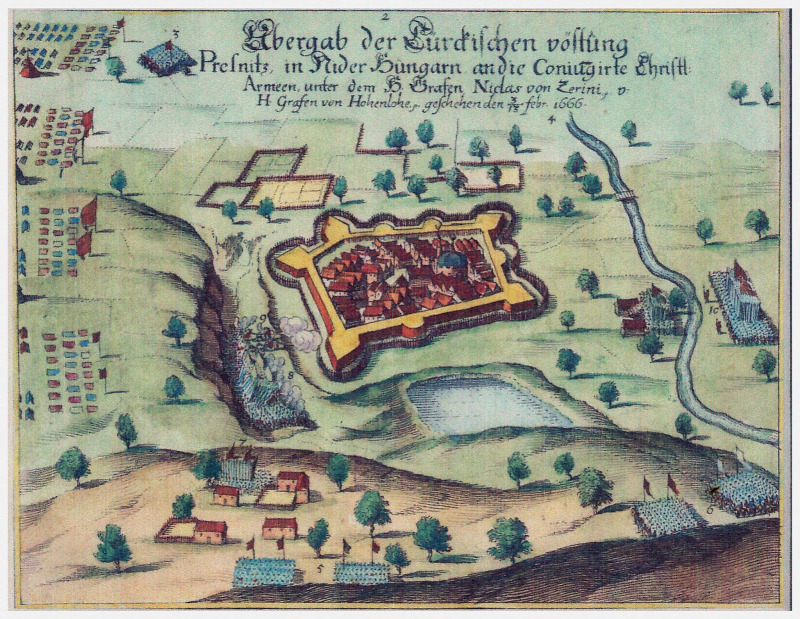 2
Übergab der Türckischen vöstung
Presnitz, in Nider Hungarn an die Coniugirte Christl:
Armeen, unter dem H. Grafen Niclas von Zerini, v:
H Grafen von Hohenlohe, geschehen den febr. 1666.
3
4
9
10
8
7
6
5